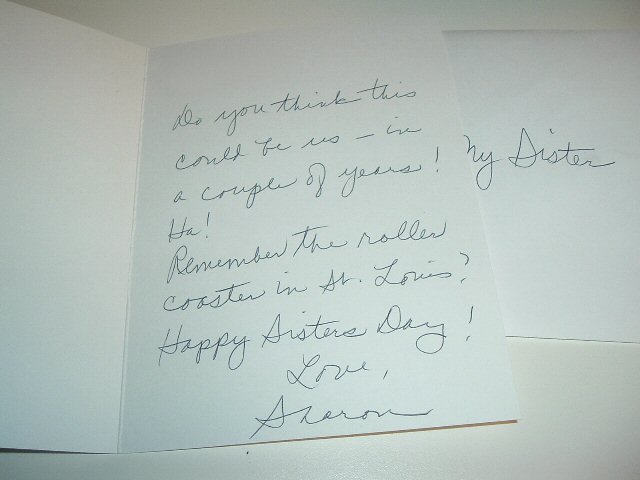 Do you think this
could be us - in
a couple of years!
Ha!
Remember the roller
coaster in St. Louis?
Happy Sisters Day!
Love,
Sharon
My Sister